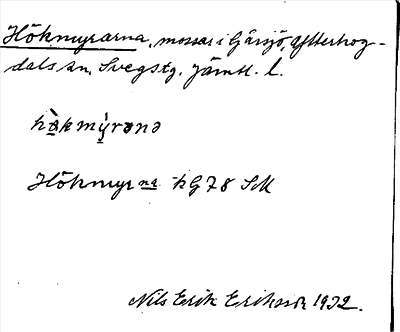 Hökmyrarna, mossar i Gårsjö, Ytterhog-
dals sn. Svegs tg. Jämtl. l.
hø̀kmỳrənə
Hökmyrna hG78 SM
Nils Erik Erikson 1932.